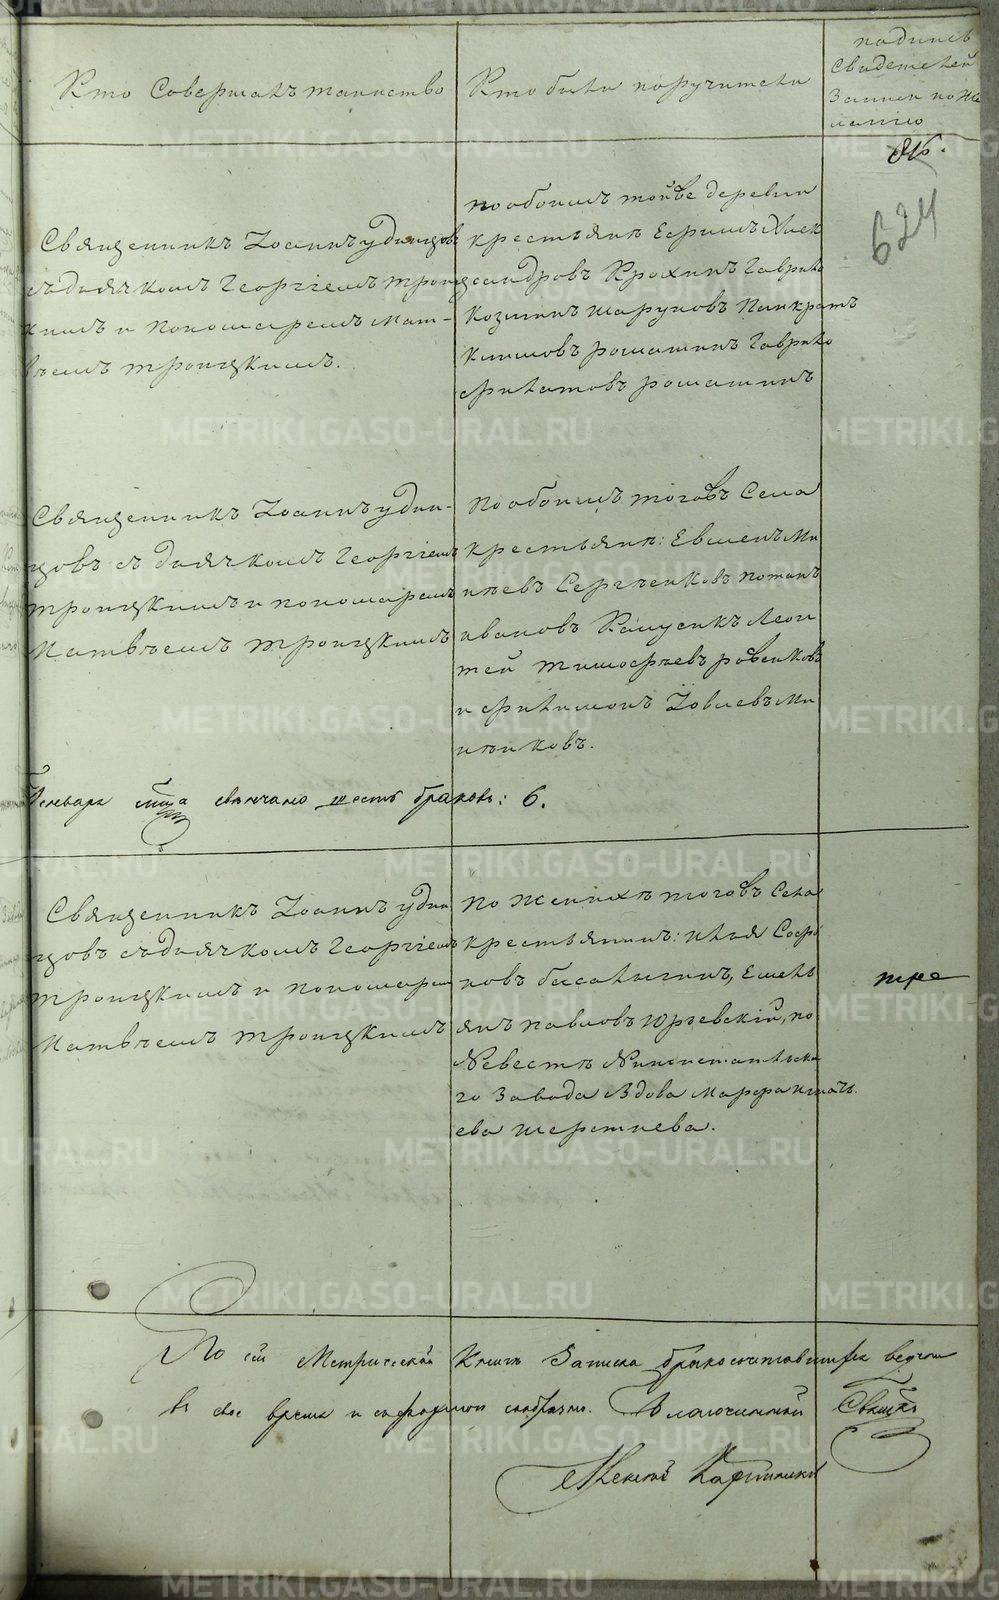 Кто Совершалъ таинство
Кто были поручители
подпись
Свидетелей
Записи по же
ланию
624
Священникъ Іоаннъ удинцовъ
съ дьячкомъ Георгіемъ троиц
кимъ и пономаремъ Мат-
вѣемъ троицкимъ.
по обоимъ тойже деревни
крестьяне Ефимъ Алек
сандровъ Крохинъ Гаврило
Козминъ шаруновъ Панкратъ
Климовъ ромашинъ Гаврило
филатовъ ромашинъ
Священникъ Іоаннъ удин-
цовъ съ дьячкомъ Георгіемъ
троицкимъ и пономаремъ
Матвѣемъ троицкимъ
По обоимъ тогожъ Села
крестьяне: Евменъ Ми
нѣевъ Сергѣенковъ потапъ
ивановъ Леон
тей тимофѣевъ ровенковъ
и филимонъ Іовлевъ Ми
нѣнковъ.
Генваря м-ца свѣнчано шесть браковъ: 6.
Священникъ Іоаннъ удин
цовъ съ дьячкомъ Георгіемъ
троицкимъ и пономаремъ
Матвѣемъ троицкимъ
По Женихѣ тогожъ Села
крестьянинъ: илья Софро
новъ басалыгинъ, Емель
янъ павловъ юрьевскій, по
Невестѣ Нижнетагильска
го Завода Вдова Марфа игнать
ева шерстнева.
тре
По сей Метрической Книгѣ Записка бракосочетавшихся ведена
въ свое время и с формою сообразно. Благочинный
Свящ-къ
METRIKI.GASO-URAL.RU